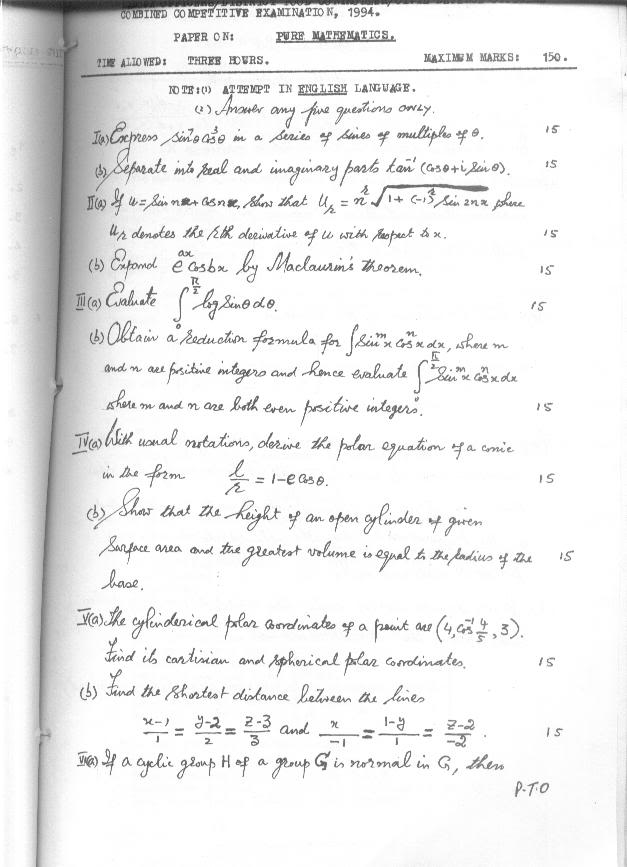 COMBINED COMPETITIVE EXAMINATION, 1994.
PAPER ON: PURE MATHEMATICS.
TIME ALLOWED: THREE HOURS. MAXIMUM MARKS: 150.
NOTE:(1) ATTEMPT IN ENGLISH LANGUAGE.
(2) Answer any five questions only.
I(a) Express sin⁷θ cos³θ in a series of sines of multiples of θ. 15
(b) Separate into real and imaginary parts tan⁻¹ (cosθ + i sinθ). 15
II(a) If u = Sin nx + cos nx, show that u_r = n^r √(1 + (-1)^r Sin 2nx) where
u_r denotes the rth derivative of u with respect to x. 15
(b) Expand e^{ax} cos bx by Maclaurin's theorem. 15
III(a) Evaluate ∫_0^{π/2} log Sinθ dθ. 15
(b) Obtain a reduction formula for ∫ Sin^m x Cos^n x dx, where m
and n are positive integers and hence evaluate ∫_0^{π/2} Sin^m x Cos^n x dx
where m and n are both even positive integers. 15
IV(a) With usual notations, derive the polar equation of a conic
in the form l/r = 1 - e Cos θ. 15
(b) Show that the height of an open cylinder of given
Surface area and the greatest volume is equal to the radius of the 15
base.
V(a) The cylinderical polar coordinates of a point are (4, cos⁻¹ 4/5, 3).
Find its cartisian and spherical polar coordinates. 15
(b) Find the Shortest distance between the lines
x-1/1 = y-2/2 = z-3/3 and x/-1 = 1-y/1 = z-2/-2 . 15
VI(a) If a cyclic group H of a group G is normal in G, then
P.T.O